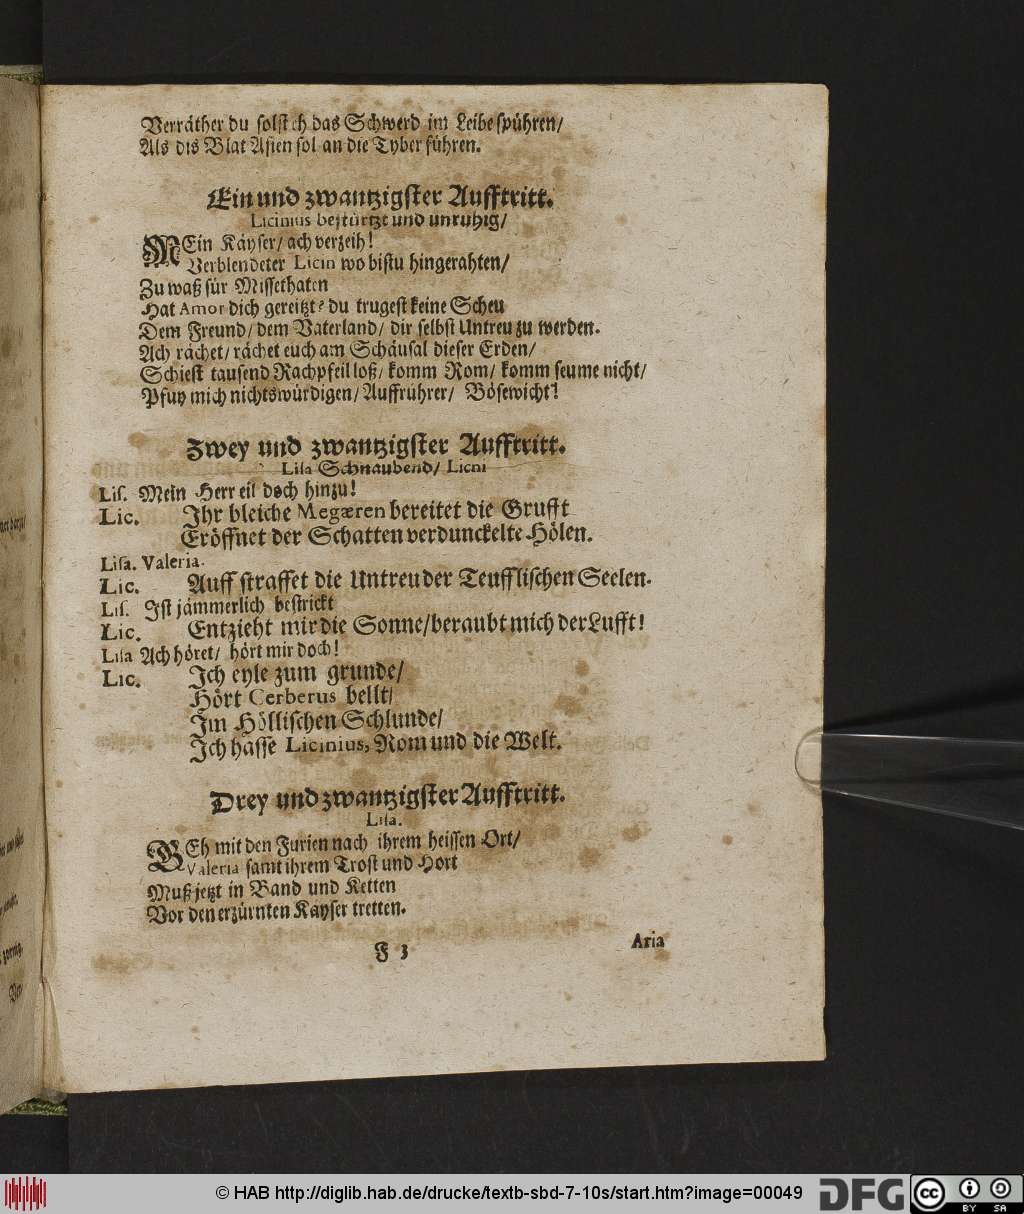 Verräther du solst ch das Schwerd im Leibe spühren/
Als dis Blat Asien sol an die Tyber führen.
Ein und zwantzigster Aufftritt.
Licinius bestürtzt und unruhig/
MEin Käyser/ ach verzeih!
Verblendeter Licin wo bistu hingerahten/
Zu waß für Missethaten
Hat Amor dich gereitzt? du trugest keine Scheu
Dem Freund/ dem Vaterland/ dir selbst Untreu zu werden.
Ach rächet/ rächet euch am Schäusal dieser Erden/
Schiest tausend Rachpfeil loß/ komm Rom/ komm seume nicht/
Pfuy mich nichtswürdigen/ Auffrührer/ Bösewicht!
Zwey und zwantzigster Aufftritt.
Lisa Schnaubend/ Licni
Lis. Mein Herr eil doch hinzu!
Lic. Ihr bleiche Megæren bereitet die Grufft
Eröffnet der Schatten verdunckelte Hölen.
Lisa. Valeria.
Lic. Auff straffet die Untreu der Teufflischen Seelen.
Lis. Ist jämmerlich bestrickt
Lic. Entzieht mir die Sonne/ beraubt mich der Lufft!
Lisa Ach höret/ hört mir doch!
Lic. Ich eyle zum grunde/
Hört Cerberus bellt/
Im Höllischen Schlunde/
Ich hasse Licinius, Rom und die Welt.
Drey und zwantzigster Aufftritt.
Lisa.
GEh mit den Furien nach ihrem heissen Ort/
Valeria samt ihrem Trost und Hort
Muß jetzt in Band und Ketten
Vor den erzürnten Kayser tretten.
F 3 Aria
© HAB http://diglib.hab.de/drucke/textb-sbd-7-10s/start.htm?image=00049
DFG cc BY SA